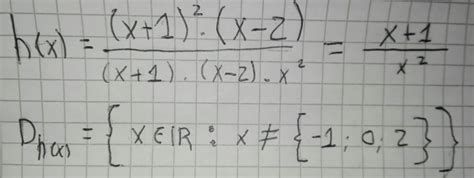 h(x) = (x+1)² · (x-2) / (x+1) · (x-2) · x² = x+1 / x²
D_h(x) = { x ∈ ℝ : x ≠ {-1; 0; 2} }